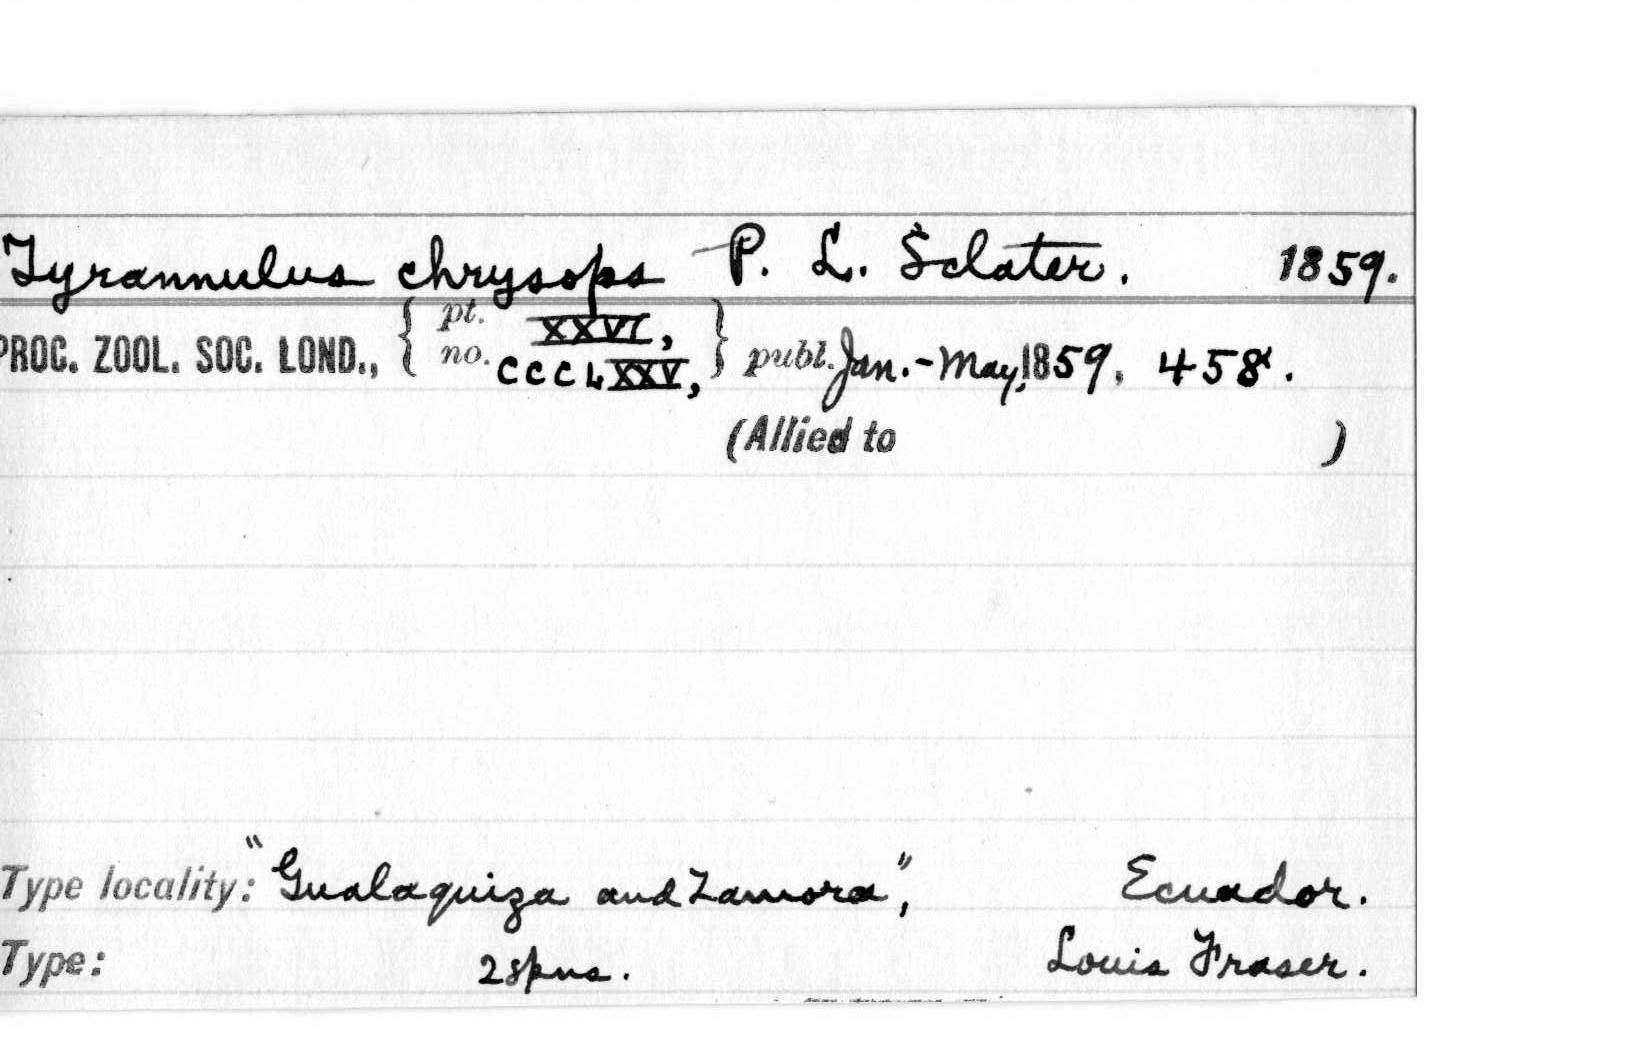 Tyrannulus chrysops P. L. Sclater. 1859.
PROC. ZOOL. SOC. LOND., { pt. XXVI, no. CCCLXXV, } publ. Jan.-May, 1859, 458.
(Allied to )
Type locality: "Gualaquiza and Zamora", Ecuador.
Type: 2 spns. Louis Fraser.